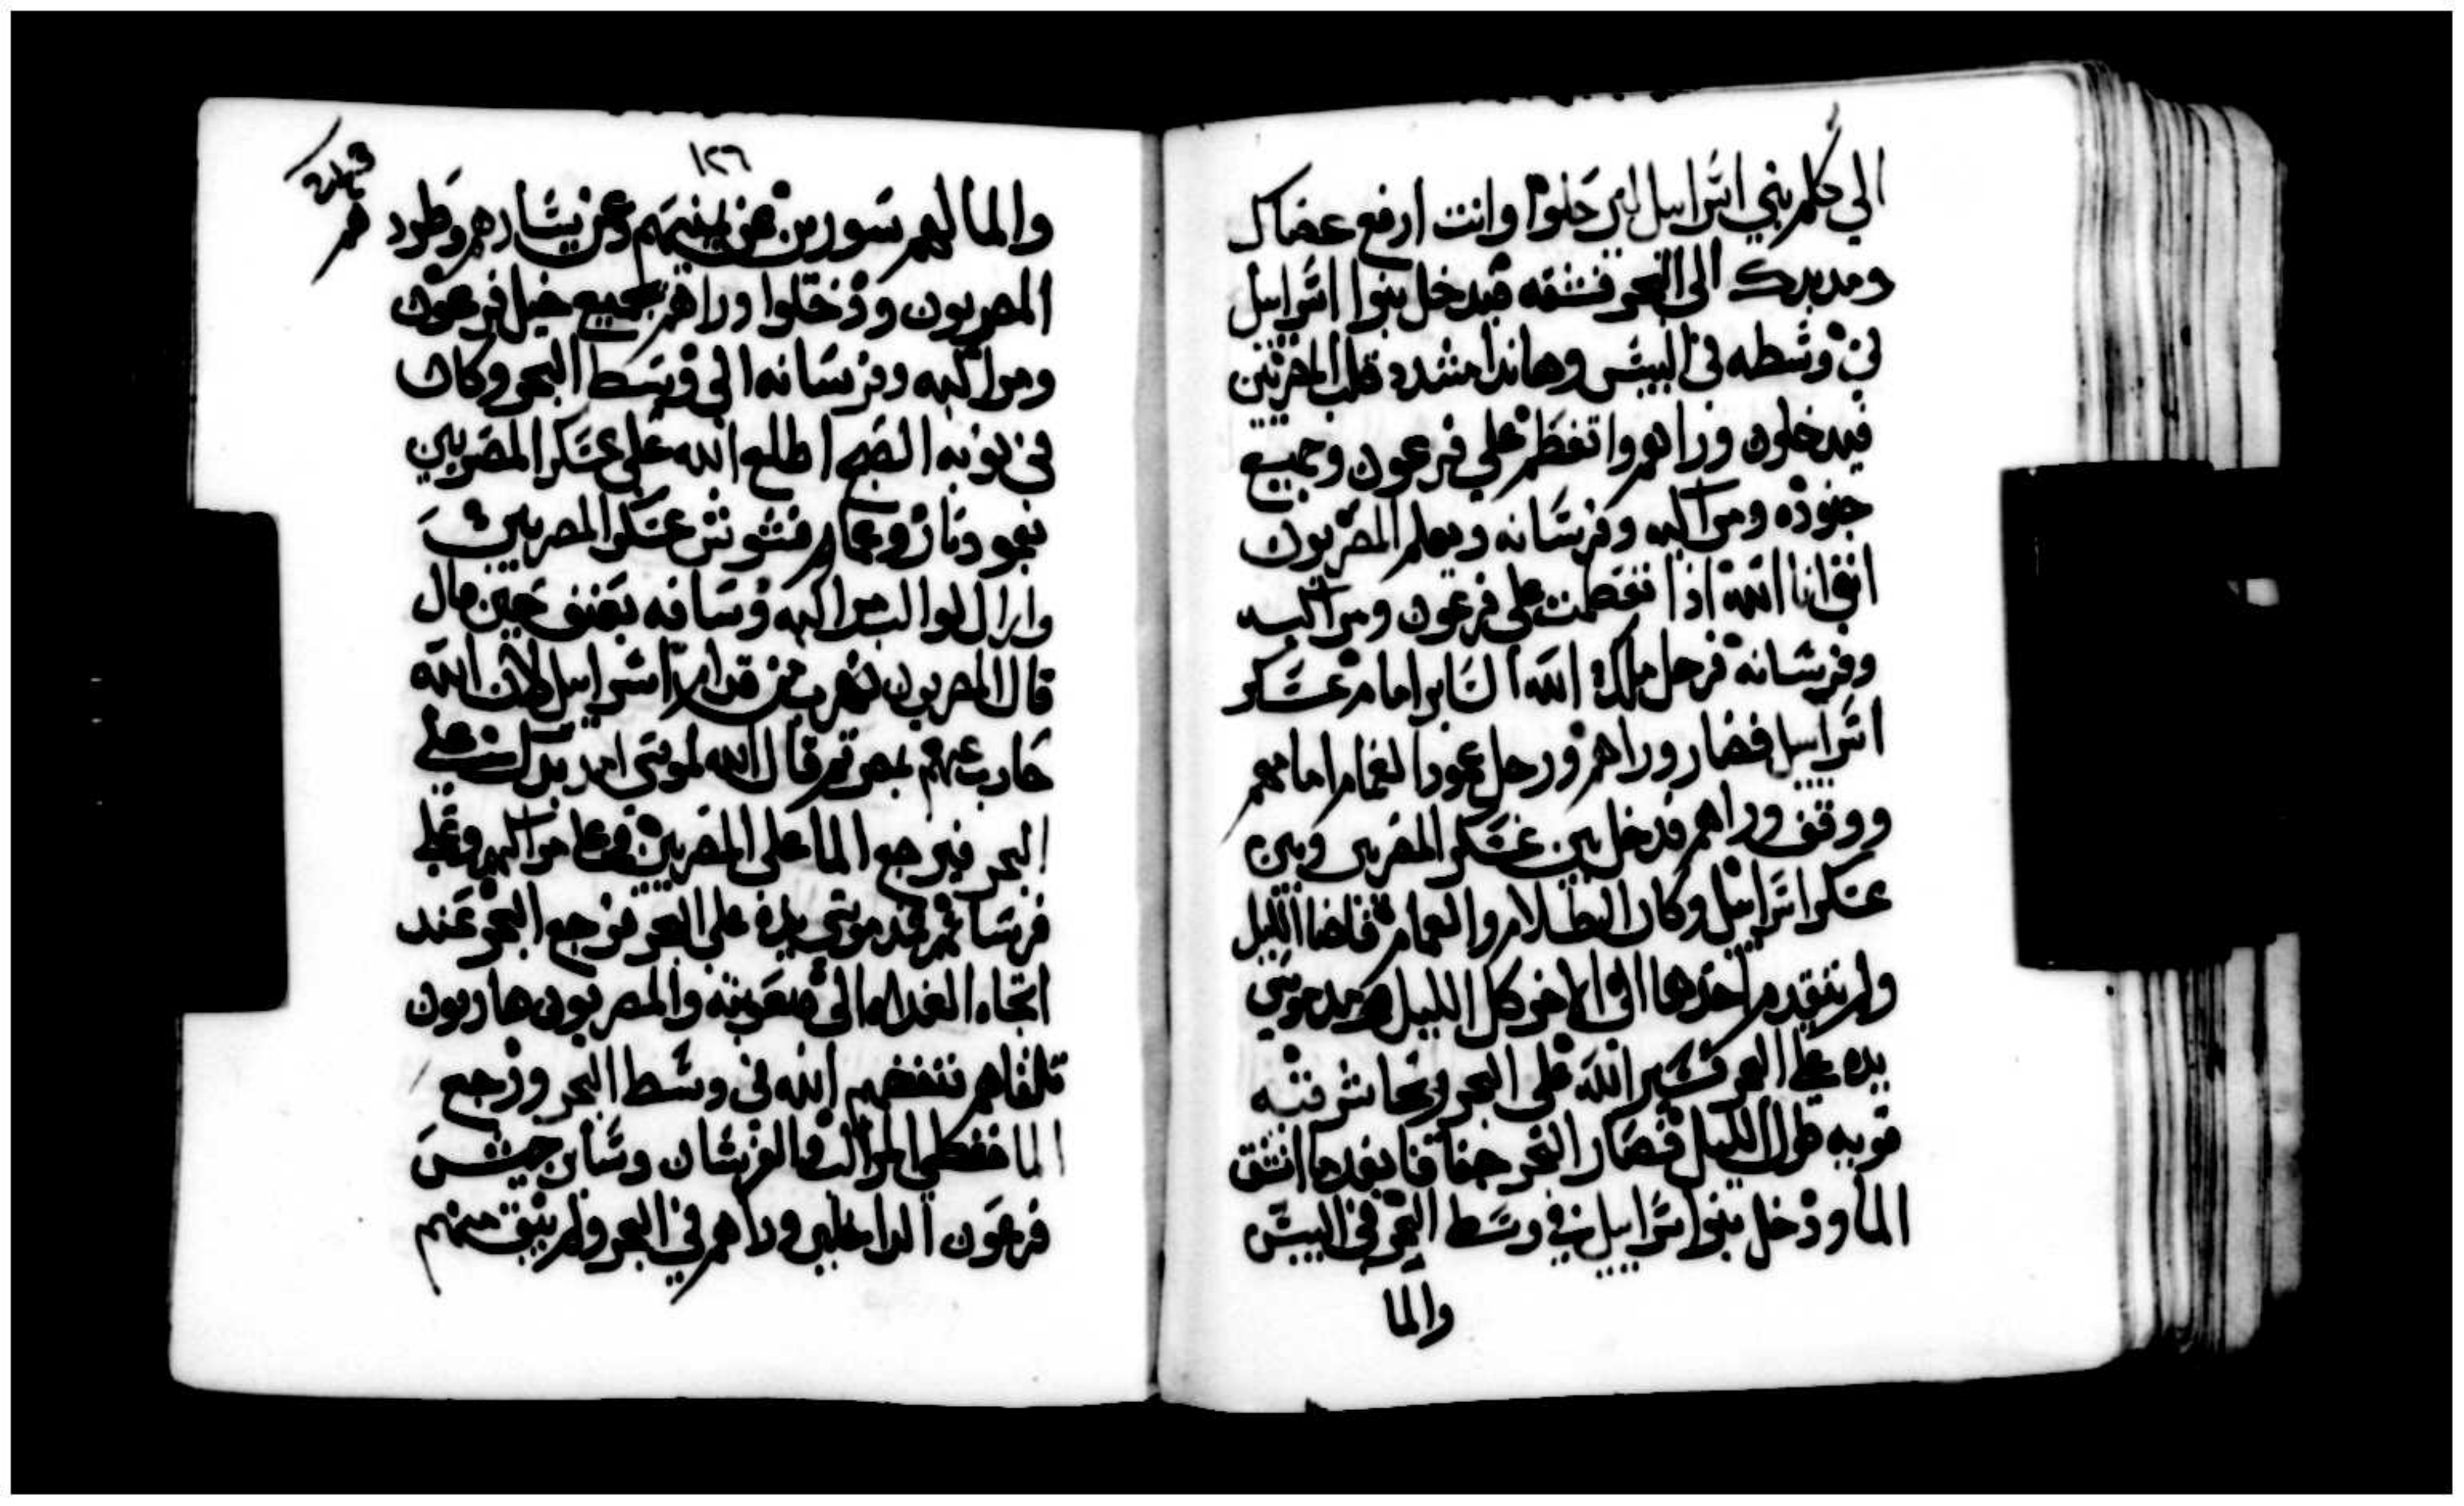 الي كلم بني اسراييل ليرحلوا وانت ارفع عصاك
ومد يدك الى البحر فشقه فيدخل بنوا اسراييل
في وسطه في اليبس وهانذا مشدد قلب المصريين
فيدخلون وراهم واتعظم علي فرعون وجميع
جنوده ومراكبه وفرسانه ويعلم المصريون
انني انا الله اذا تعظمت علي فرعون ومراكبه
وفرسانه فرحل ملاك الله الساير امام عسكر
اسراييل فصار وراهم ورحل عمود الغمام امامهم
ووقف وراهم فدخل بين عسكر المصريين وبين
عسكر اسراييل وكان الظلام والغمام فاضا الليل
ولم يتقدم احدهما الى الاخر كل الليل فمد موسي
يده علي البحر فسير الله على البحر ريحا شرقيه
قويه طول الليل فصار البحر جفافا بعدما انشق
الما ودخل بنوا اسراييل في وسط البحر في اليبس
والما
١٢٦
والما لهم سورين عن يمينهم وعن يسارهم وطرد
المصريون ودخلوا وراهم جميع خيل فرعون
ومراكبه وفرسانه الي وسط البحر وكان
في نوبه الصبح اطلع الله على عسكر المصريين
بعمود نار وغمام فشوش عسكر المصريين
وازال لوالب مراكبه وساقه بعنف حين قال
قال المصريون نهرب من قدام اسراييل لان الله
حارب عنهم بمصر ثم قال الله لموسى امد يدك على
البحر فيرجع الما على المصريين على مراكبهم وعلى
فرسانهم فمد موسي يده على البحر فرجع البحر عند
اتجاه الغداه الى صعوبته والمصريون هاربون
تلقاهم فنفضهم الله في وسط البحر ورجع
الما فغطي المراكب والفرسان وساير جيش
فرعون الداخلين وراهم في البحر ولم يبق منهم